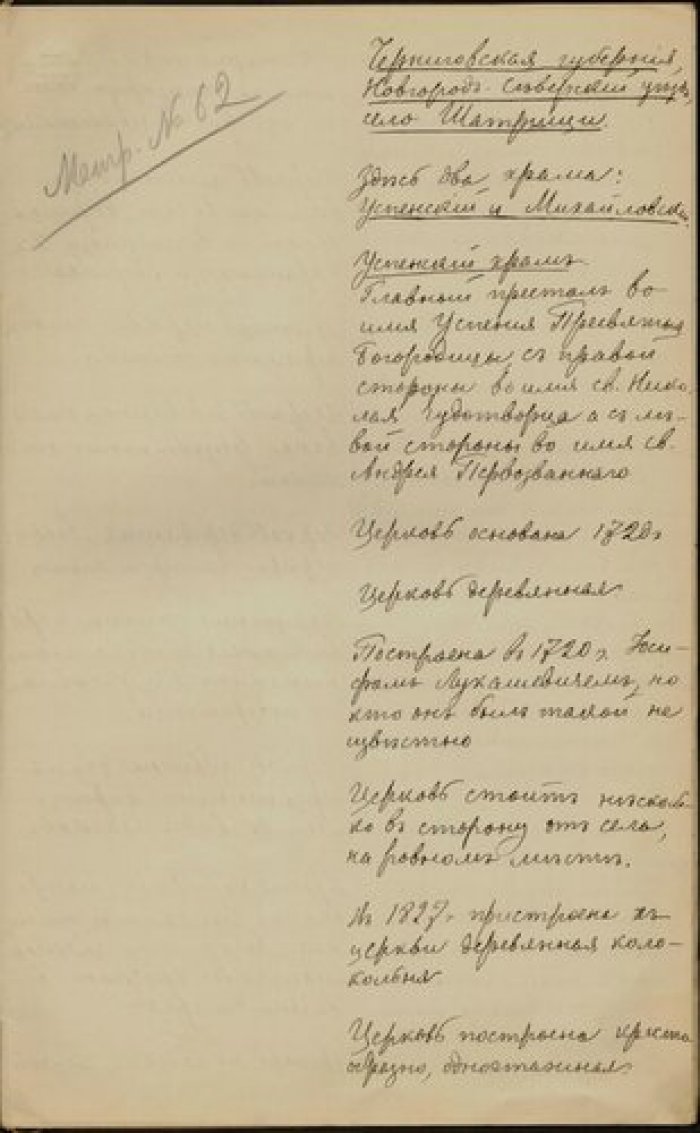 Метр. № 62
Черниговская губернія,
Новгородъ-Сѣверскій уѣздъ
село Шатрищи.
Здѣсь два храма:
Успенскій и Михайловскій.
Успенскій храмъ.
Главный престолъ во
имя Успенія Пресвятыя
Богородицы, съ правой
стороны во имя св. Нико-
лая Чудотворца а съ лѣ-
вой стороны во имя св.
Андрея Первозваннаго
Церковь основана 1720 г
Церковь деревянная
Построена въ 1720 г.
фомъ Лукашевичемъ, но
кто онъ былъ такой не
извѣстно
Церковь стоитъ нѣсколь-
ко въ сторону отъ села,
на ровномъ мѣстѣ.
Въ 1827 г. пристроена къ
церкви деревянная коло-
кольня.
Церковь построена кресто
образно, одноэтажная